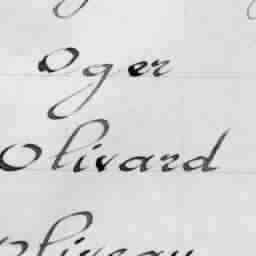 Oger
Olivard